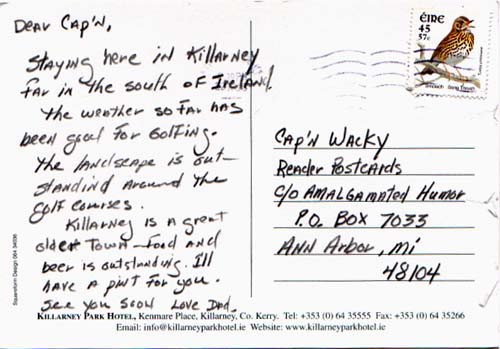 Dear Cap'n,
Staying here in Killarney
far in the south of Ireland.
The weather so far has
been good for Golfing.
The landscape is out-
standind around the
golf courses.
Killarney is a great
older town - food and
beer is outstanding. I'll
have a pint for you.
See you soon Love Dad.
ÉIRE
45
57c
Smólach Song Thrush
Cap'n Wacky
Reader Postcards
c/o Amalgamated Humor
P.O. Box 7033
Ann Arbor, Mi
48104
Squareform Design 064 34036
KILLARNEY PARK HOTEL, Kenmare Place, Killarney, Co. Kerry. Tel: +353 (0) 64 35555 Fax: +353 (0) 64 35266
Email: info@killarneyparkhotel.ie Website: www.killarneyparkhotel.ie